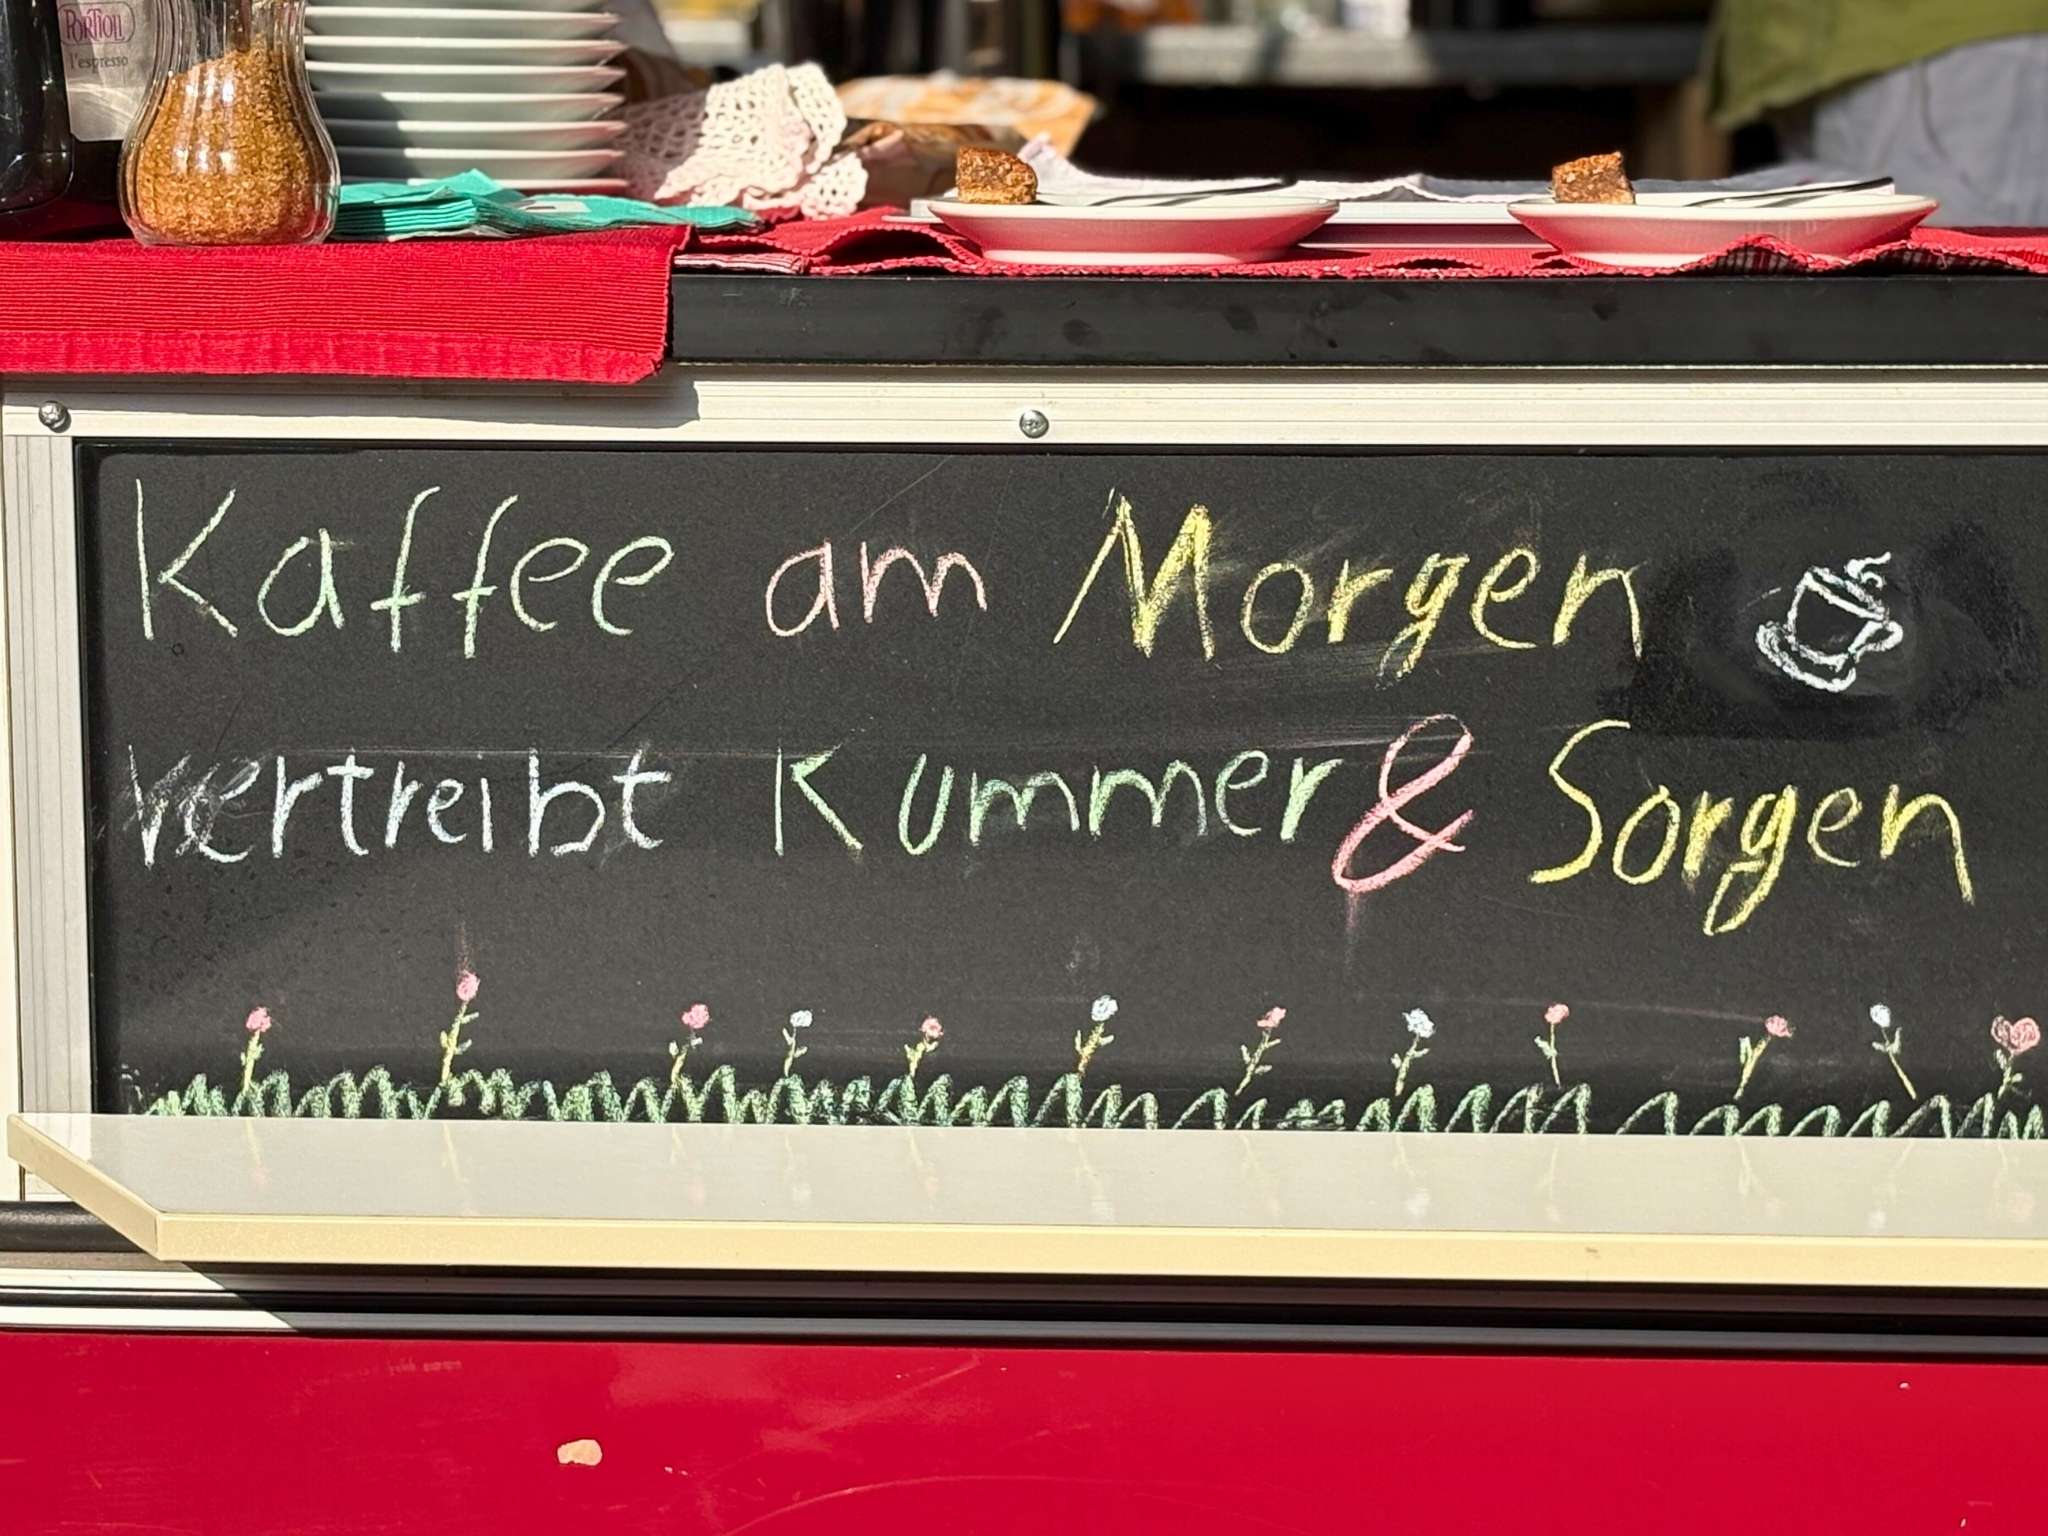 PORTIOLI
l'espresso
Kaffee am Morgen
vertreibt Kummer & Sorgen